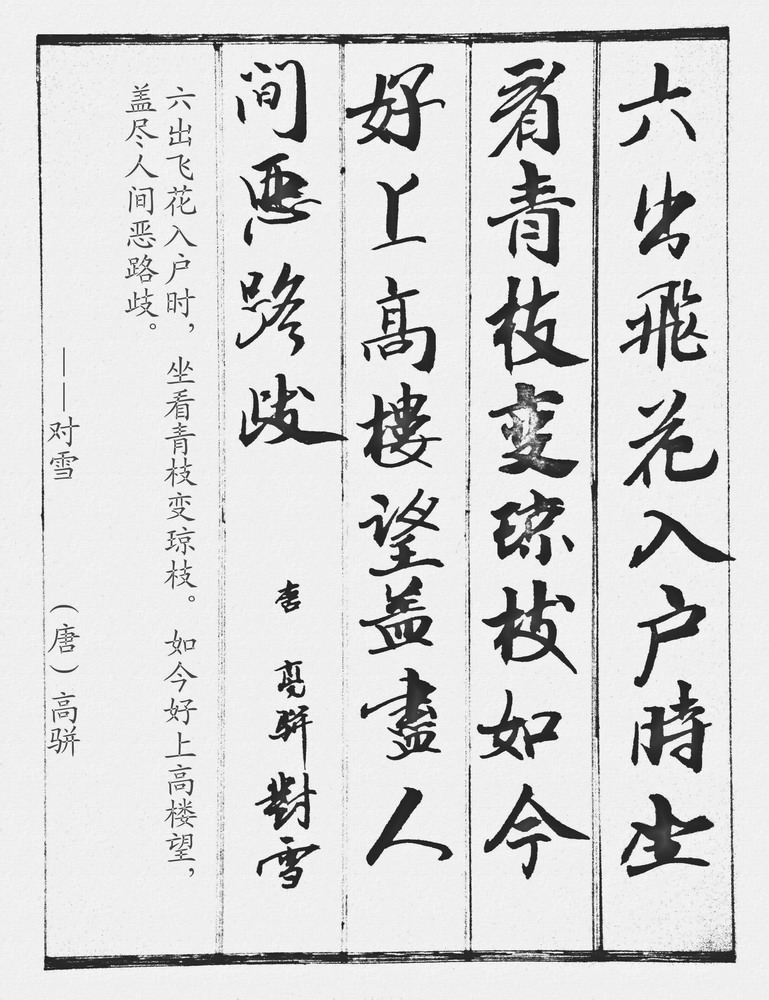 六出飛花入户時坐
看青枝变琼枝如今
好上高樓望盖盡人
间惡路歧
唐 高骈對雪
六出飞花入户时，坐看青枝变琼枝。如今好上高楼望，
盖尽人间恶路歧。
——对雪 （唐）高骈